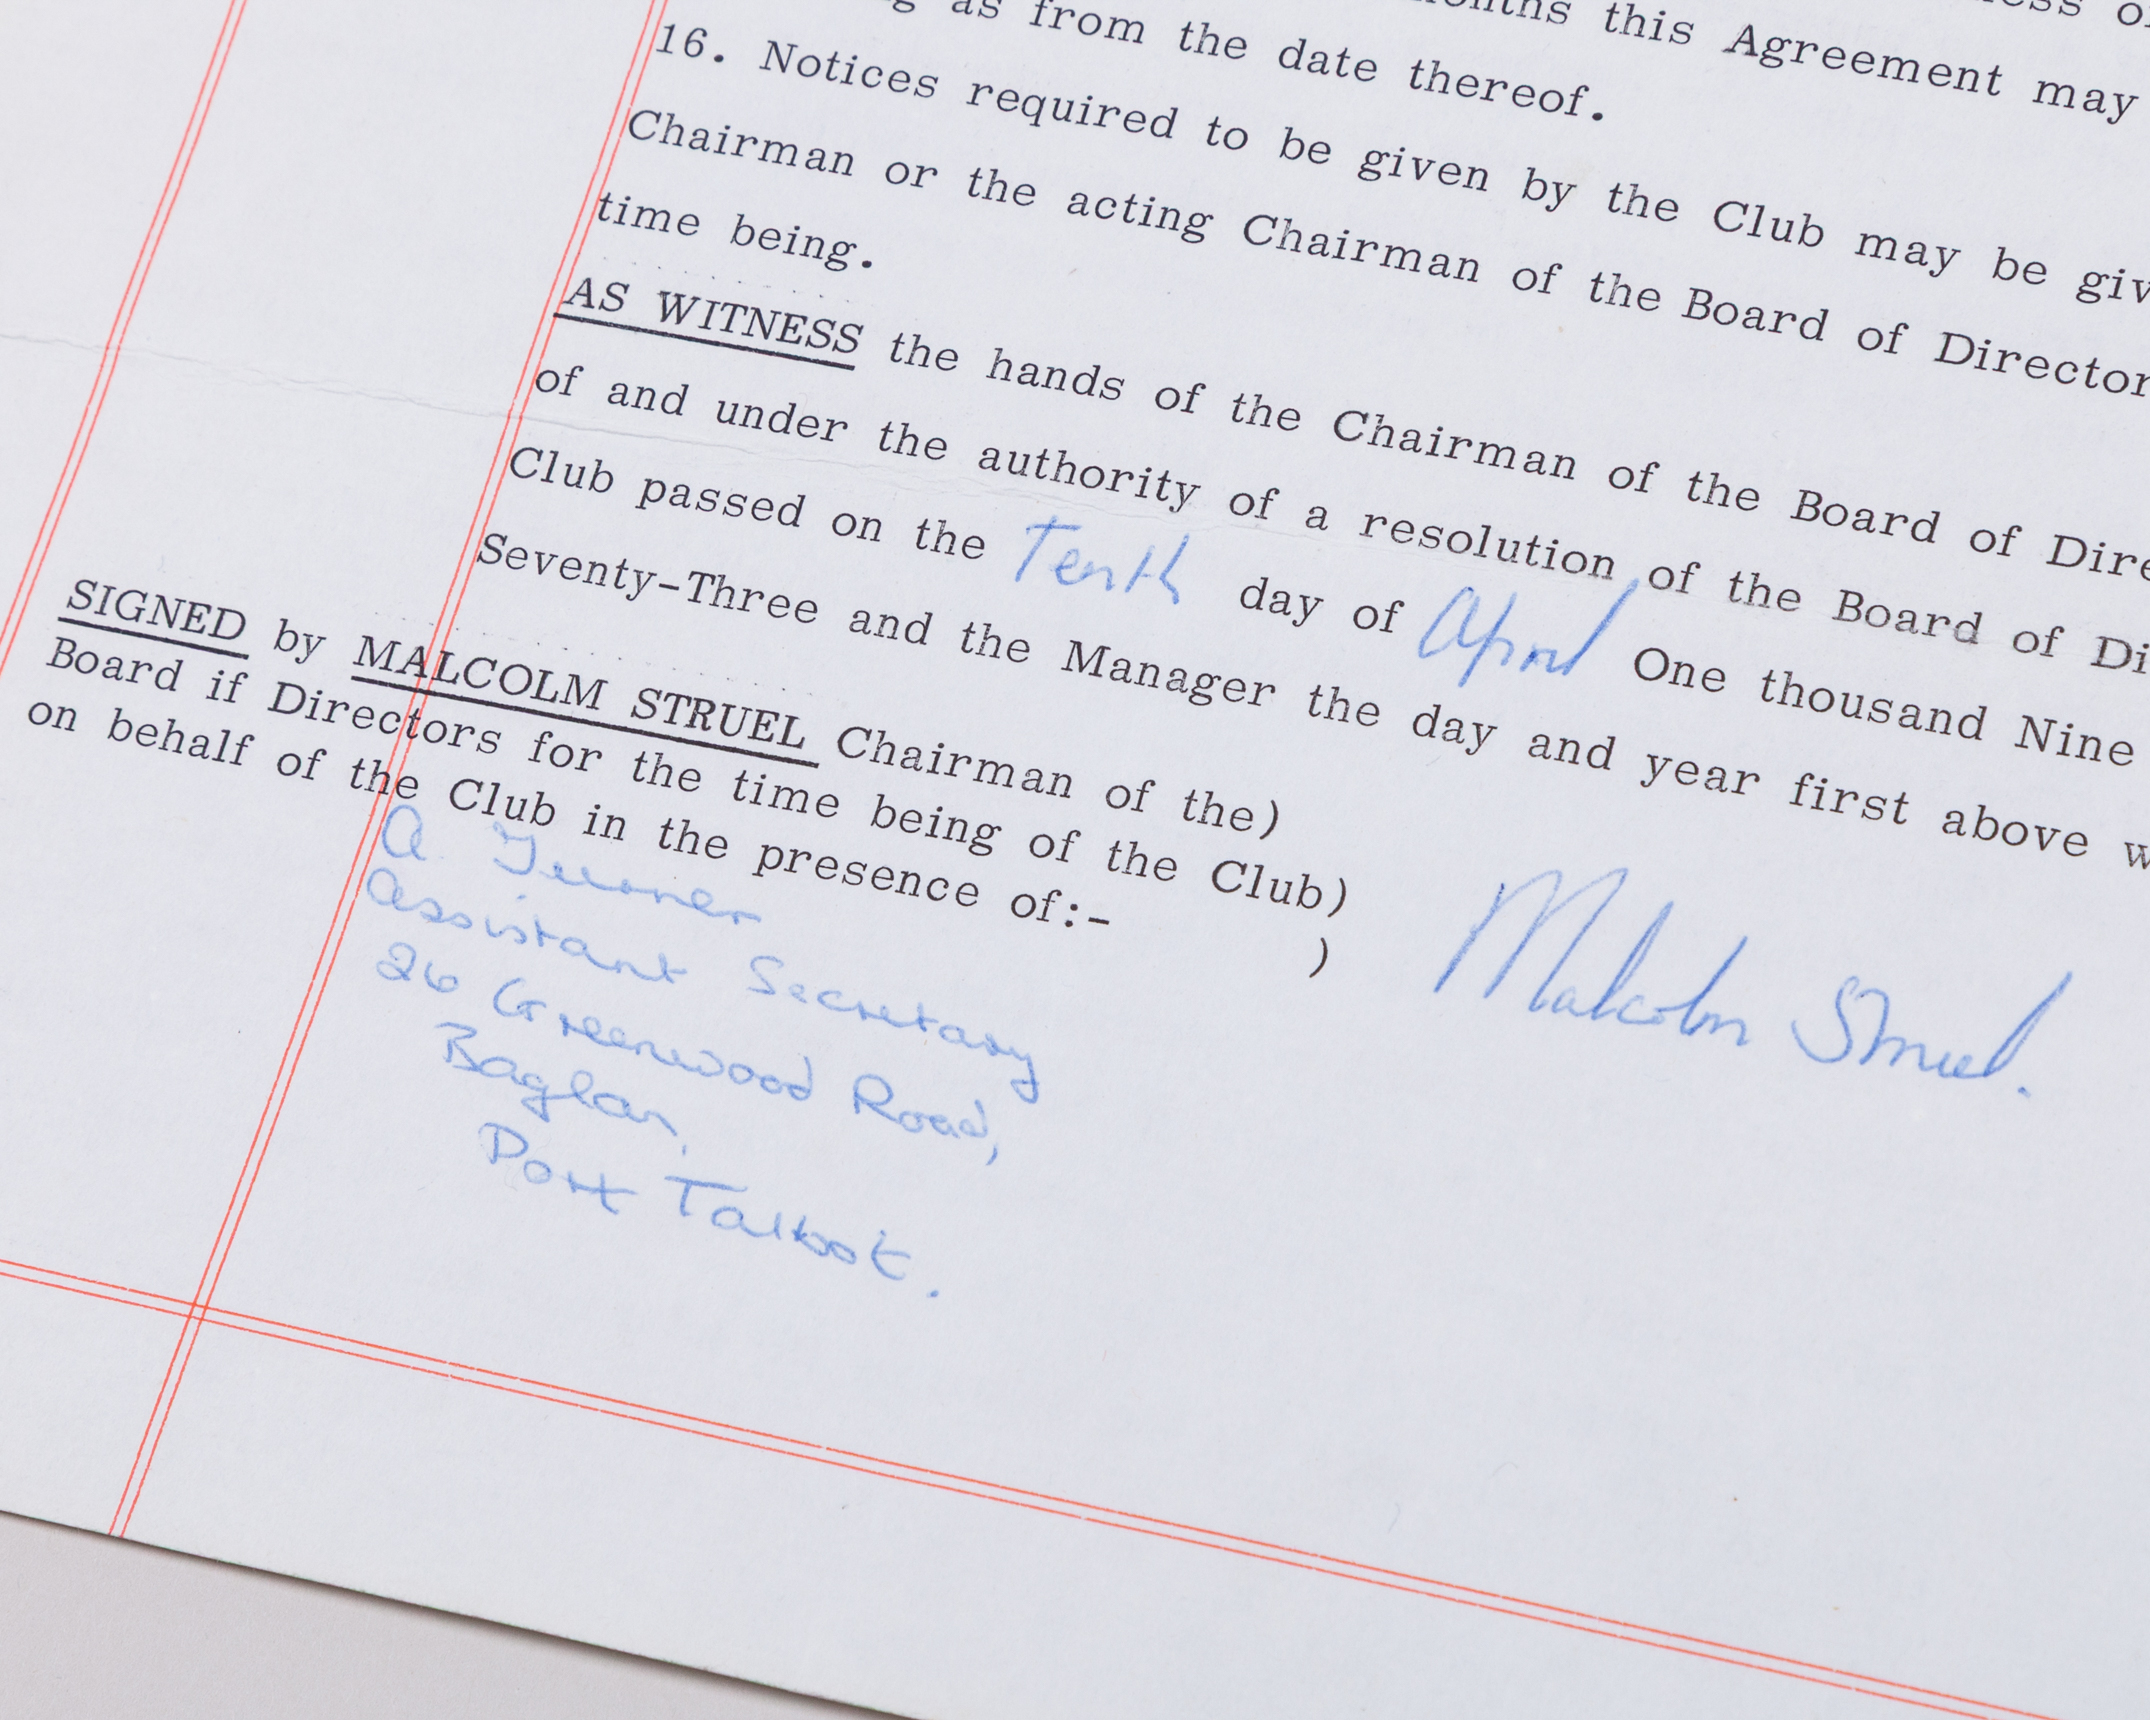 this Agreement may
as from the date thereof.
16. Notices required to be given by the Club may be giv
Chairman or the acting Chairman of the Board of Director
time being.
AS WITNESS the hands of the Chairman of the Board of Dire
of and under the authority of a resolution of the Board of Di
Club passed on the Tenth day of April One thousand Nine
Seventy-Three and the Manager the day and year first above w
SIGNED by MALCOLM STRUEL Chairman of the)
Board if Directors for the time being of the Club)
on behalf of the Club in the presence of:-
)
A Turner
Assistant Secretary
26 Greenwood Road,
Baglan,
Port Talbot.
Malcolm Struel.